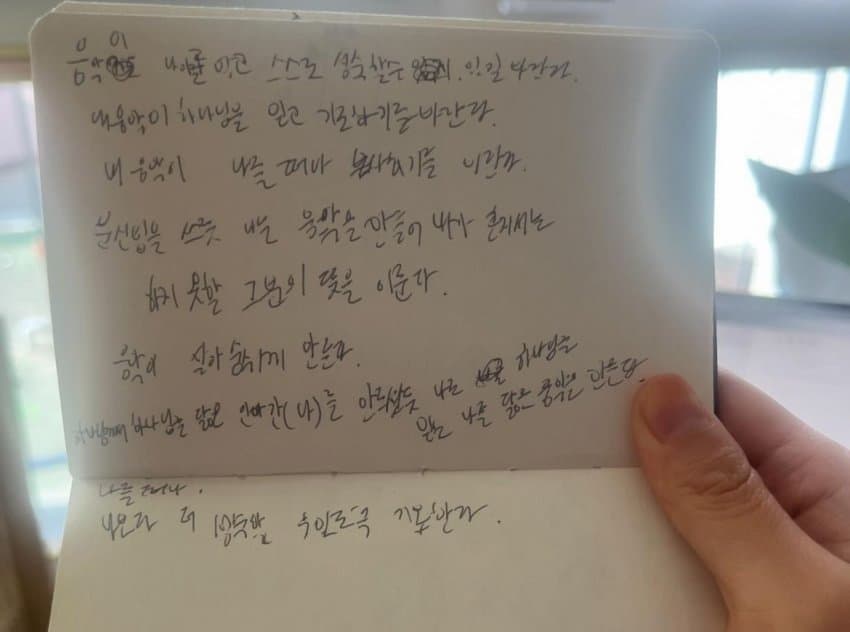 음악이 나를 잊고 스스로 성숙할수 있길 바란다.
내 음악이 하나님을 믿고 기도하기를 바란다.
내 음악이 나를 떠나 봉사하기를 바란다.
분신법을 쓰듯 나는 음악을 만들어 나가 혼자서는
하지 못할 그분의 뜻을 이룬다.
음악이 살아 숨쉬게 만든다.
하나님께서 하나님을 닮은 인간(나)를 만드셨듯 나도 하나님을
나를 닮은 음악을 만든다.
나를 떠나.
나보다 더 성숙할 수 있도록 기도한다.